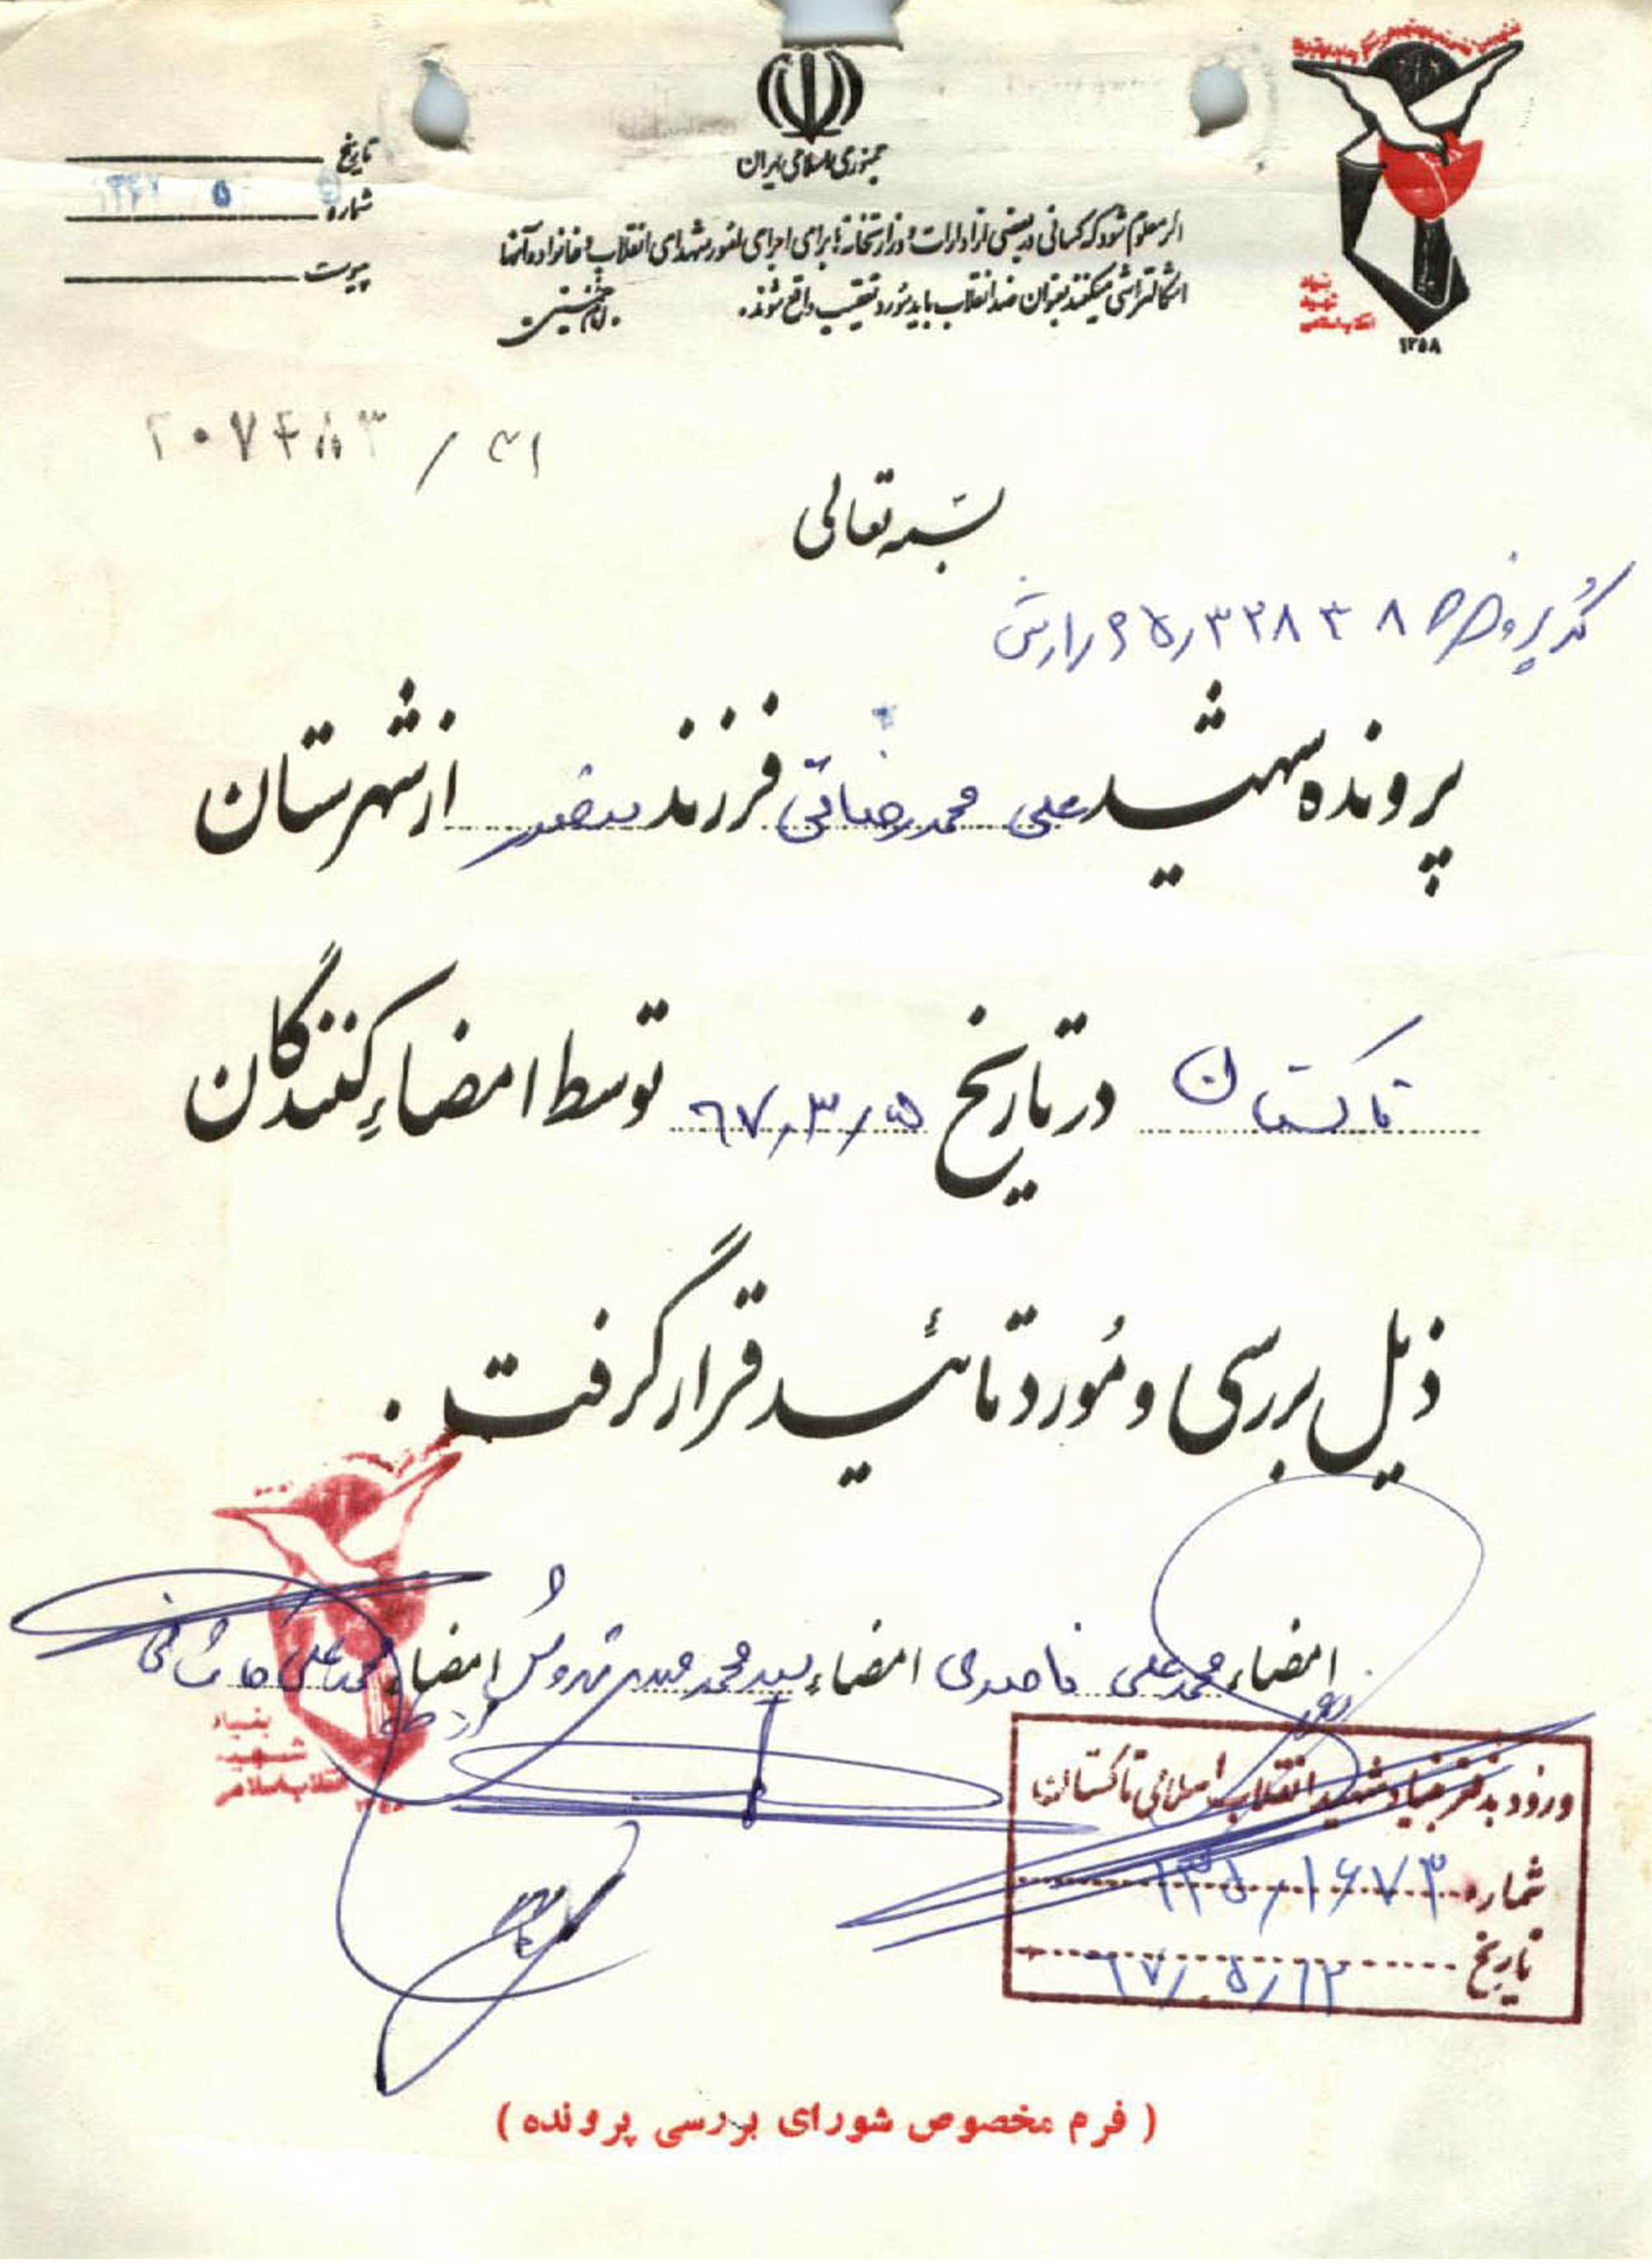 جمهوری اسلامی ایران
تاریخ
شماره
پیوست
اگر معلوم شود که کسانی در بعضی از ادارات و وزارتخانه‌ها برای اجرای امور شهدای انقلاب و خانواده آنها
اشکالتراشی میکنند بعنوان ضد انقلاب باید مورد تعقیب واقع شوند.
امام خمینی
بنیاد
شهید
انقلاب اسلامی
۱۳۵۸
بسمه تعالی
کد پرونده
پرونده شهید علی محمد رضاقی فرزند صفدر از شهرستان
تاکستان در تاریخ ۶۷/۳/۵ توسط امضاء کنندگان
ذیل بررسی و مورد تائید قرار گرفت.
امضاء محمدعلی امضاء سید محمد امضاء محمدعلی
بنیاد
شهید
انقلاب اسلامی
ورود بدفتر بنیاد شهید انقلاب اسلامی تاکستان
شماره ۱۳۵/۱۶۷۳
تاریخ ۶۷/۵/۱۲
( فرم مخصوص شورای بررسی پرونده )